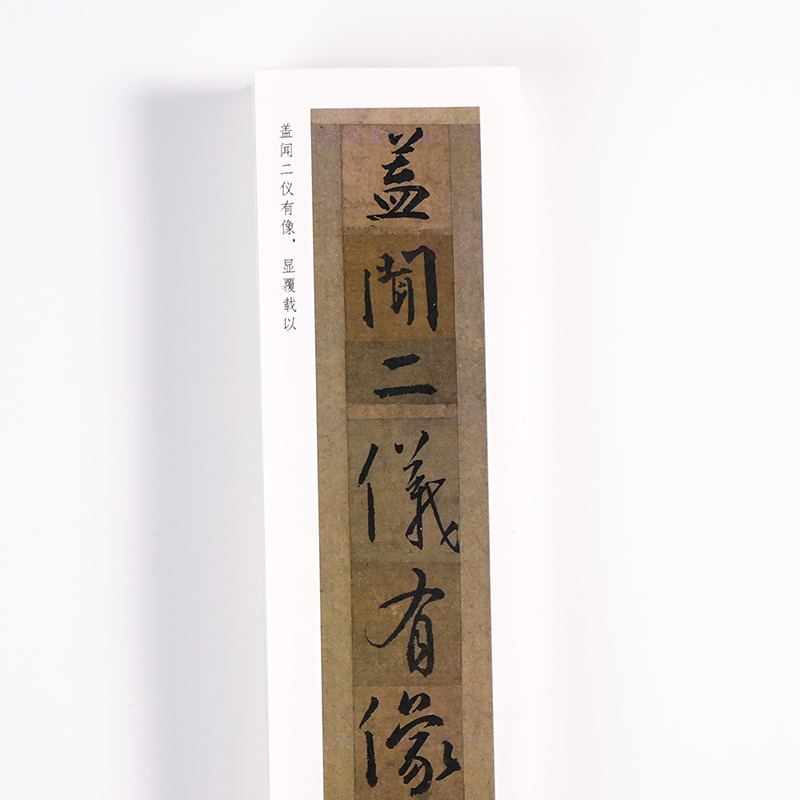 盖闻二仪有像，显覆载以
蓋聞二儀有像